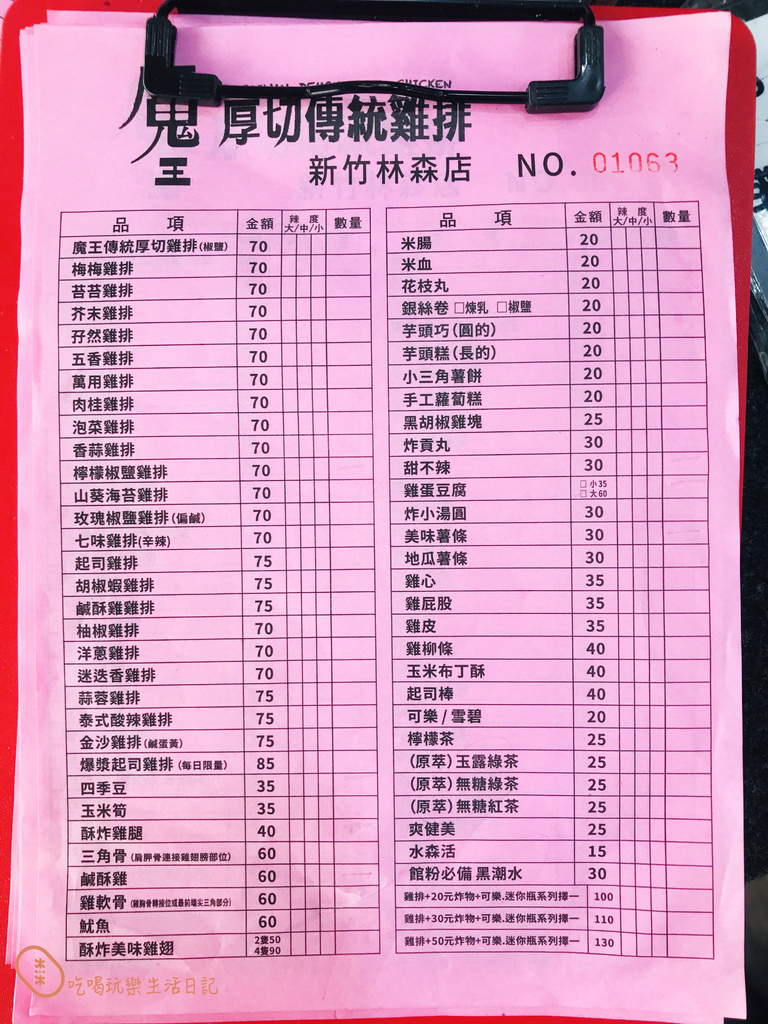 CHICKEN
魔王
厚切傳統雞排
新竹林森店 NO. 01063
品項 金額 辣度 大/中/小 數量
魔王傳統厚切雞排(椒鹽) 70
梅梅雞排 70
苔苔雞排 70
芥末雞排 70
孜然雞排 70
五香雞排 70
萬用雞排 70
肉桂雞排 70
泡菜雞排 70
香蒜雞排 70
檸檬椒鹽雞排 70
山葵海苔雞排 70
玫瑰椒鹽雞排(偏鹹) 70
七味雞排(辛辣) 70
起司雞排 75
胡椒蝦雞排 75
鹹酥雞雞排 75
柚椒雞排 70
洋蔥雞排 70
迷迭香雞排 70
蒜蓉雞排 75
泰式酸辣雞排 75
金沙雞排(鹹蛋黃) 75
爆漿起司雞排(每日限量) 85
四季豆 35
玉米筍 35
酥炸雞腿 40
三角骨(肩胛骨連接雞翅膀部位) 60
鹹酥雞 60
雞軟骨(雞胸骨轉接位或最前端尖三角部分) 60
魷魚 60
酥炸美味雞翅 2隻50 4隻90
品項 金額 辣度 大/中/小 數量
米腸 20
米血 20
花枝丸 20
銀絲卷 □煉乳 □椒鹽 20
芋頭巧(圓的) 20
芋頭糕(長的) 20
小三角薯餅 20
手工蘿蔔糕 20
黑胡椒雞塊 25
炸貢丸 30
甜不辣 30
雞蛋豆腐 □小35 □大60
炸小湯圓 30
美味薯條 30
地瓜薯條 30
雞心 35
雞屁股 35
雞皮 35
雞柳條 40
玉米布丁酥 40
起司棒 40
可樂/雪碧 20
檸檬茶 25
(原萃)玉露綠茶 25
(原萃)無糖綠茶 25
(原萃)無糖紅茶 25
爽健美 25
水森活 15
館粉必備 黑潮水 30
雞排+20元炸物+可樂.迷你瓶系列擇一 100
雞排+30元炸物+可樂.迷你瓶系列擇一 110
雞排+50元炸物+可樂.迷你瓶系列擇一 130
吃喝玩樂生活日記